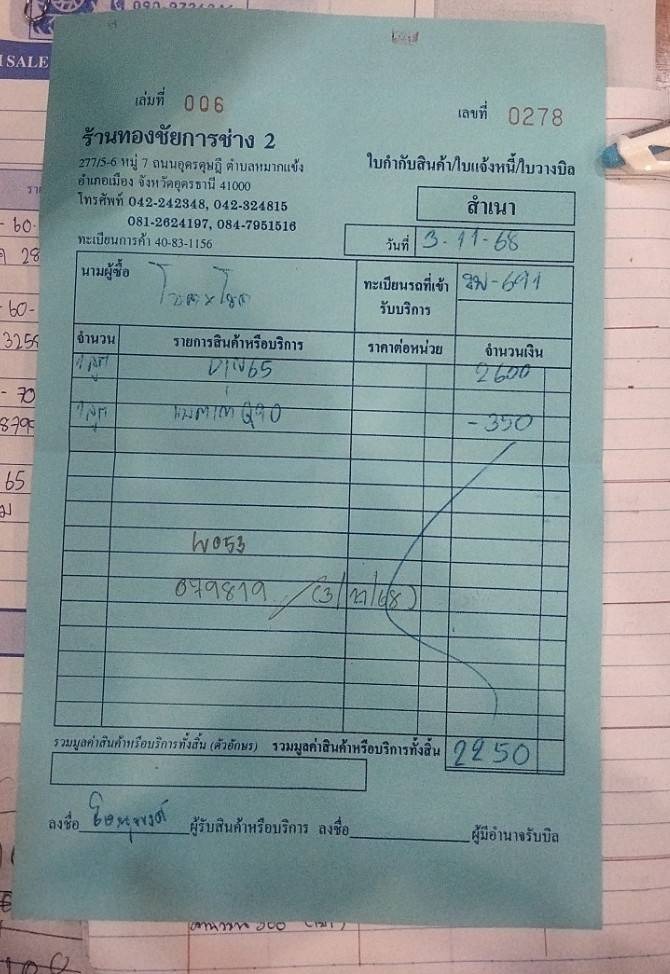 SALE
เล่มที่ 006
เลขที่ 0278
ร้านทองชัยการช่าง 2
277/5-6 หมู่ 7 ถนนอุดรดุษฎี ตำบลหมากแข้ง
อำเภอเมือง จังหวัดอุดรธานี 41000
โทรศัพท์ 042-242348, 042-324815
081-2624197, 084-7951516
ทะเบียนการค้า 40-83-1156
ใบกำกับสินค้า/ใบแจ้งหนี้/ใบวางบิล
สำเนา
วันที่ 3-11-68
นามผู้ซื้อ
ทะเบียนรถที่เข้ารับบริการ -691
จำนวน รายการสินค้าหรือบริการ ราคาต่อหน่วย จำนวนเงิน
1 ลูก 65 2600
1 ลูก แบตเก่า -350
W053
079819 (3/11/68)
รวมมูลค่าสินค้าหรือบริการทั้งสิ้น (ตัวอักษร) รวมมูลค่าสินค้าหรือบริการทั้งสิ้น 2250
ลงชื่อ ผู้รับสินค้าหรือบริการ ลงชื่อ ผู้มีอำนาจรับบิล